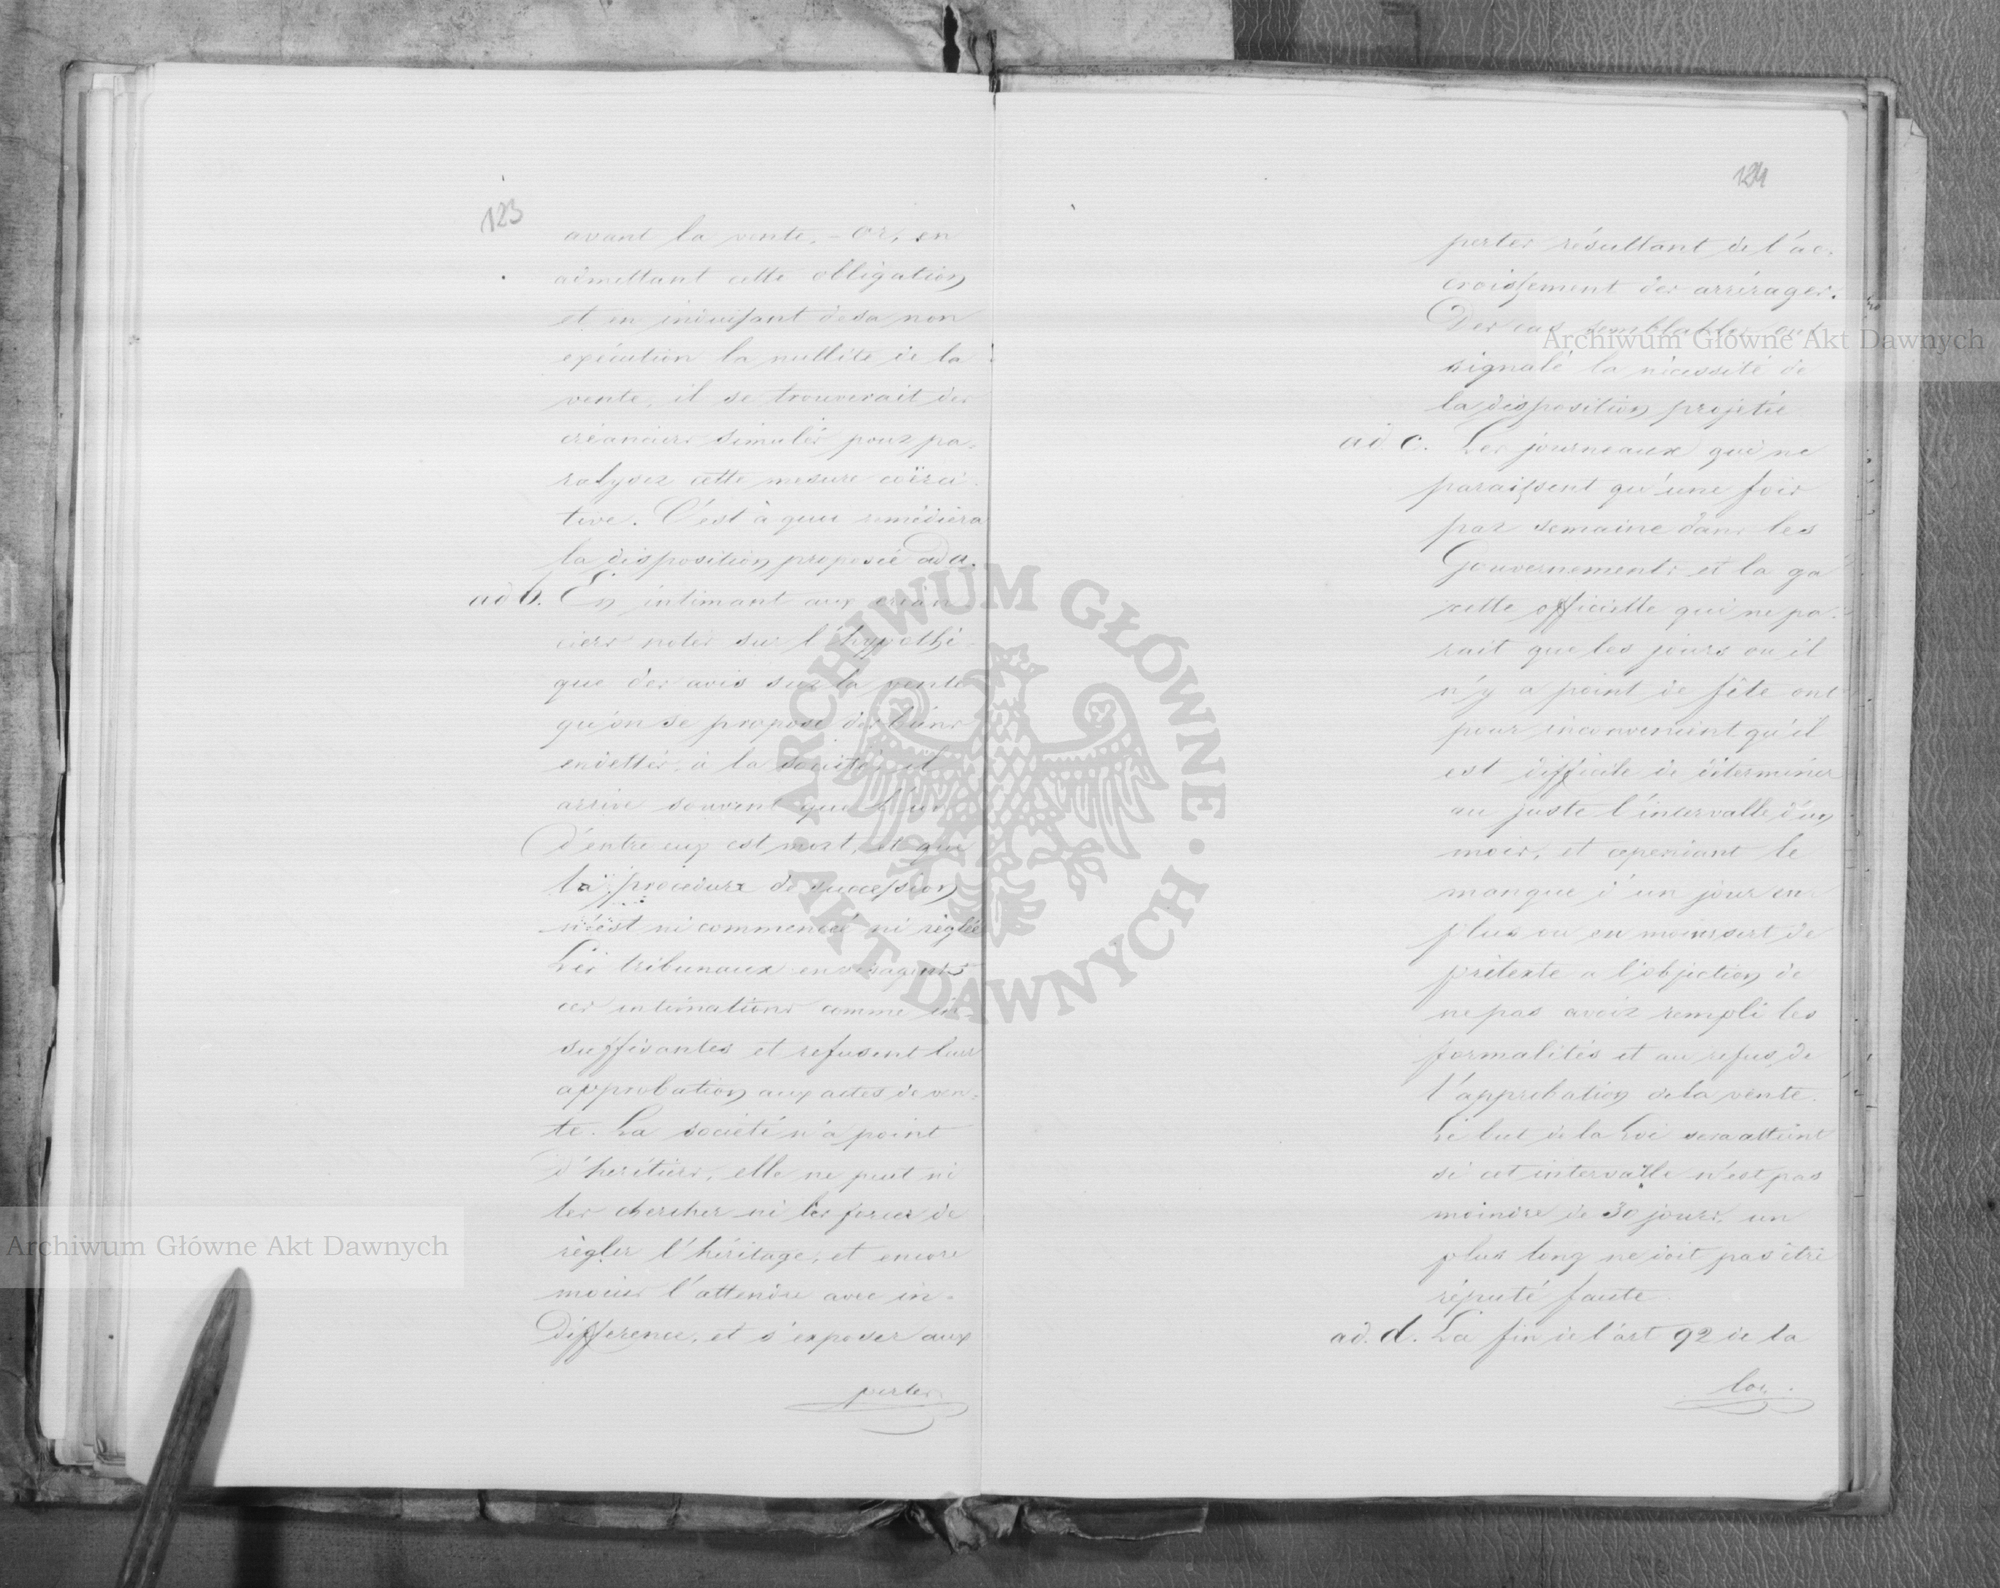 123
avant la vente. – Or, en
admettant cette obligation
et en induisant de sa non
exécution la nullité de la
vente, il se trouverait des
créanciers simulés pour pa-
ralyser cette mesure coërci-
tive. C'est à quoi remédiera
la disposition proposée ad a.
ad b. En intimant aux créan-
ciers notés sur l'hypothè-
que des avis sur la vente
qu'on se propose des biens
endettés à la société, il
arrive souvent que l'un
d'entre eux est mort, et que
la procédure de succession
n'est ni commencé ni réglée
Les tribunaux envisagent
ces intimations comme in-
suffisantes et refusent leur
approbation aux actes de ven-
te. La société n'a point
d'héritiers, elle ne peut ni
les chercher ni les forcer de
règler l'héritage, et encore
moins l'attendre avec in-
différence, et s'exposer aux
pertes
124
pertes résultant de l'ac-
croissement des arrérages.
Des cas semblables ont
signalé la nécessité de
la disposition projetée
ad c. Les journeaux qui ne
paraissent qu'une fois
par semaine dans les
Gouvernements et la ga-
zette officielle qui ne pa-
rait que les jours ou il
n'y a point de fête ont
pour inconvenient qu'il
est difficile de déterminer
au juste l'intervalle d'un
mois, et cependant le
manque d'un jour en
plus ou en moins sert de
prétexte a l'objection de
ne pas avoir rempli les
formalités et au refus de
l'approbation de la vente.
Le but de la Loi sera atteint
si cet intervalle n'est pas
moindre de 30 jours, un
plus long ne doit pas être
réputé faute.
ad. d. La fin de l'art 92 de la
loi.
Archiwum Główne Akt Dawnych
Archiwum Główne Akt Dawnych
ARCHIWUM GŁÓWNE
AKT DAWNYCH